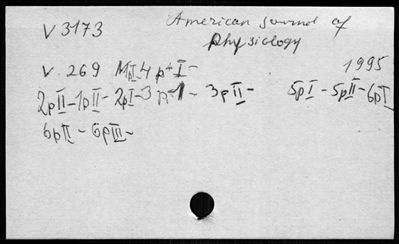 V 3173 American Journal of
Physiology
V. 269 1995
2pII-1pII- 2pI-3 3pII- 5pI-5pII-6pI
6pII- 6pIII-